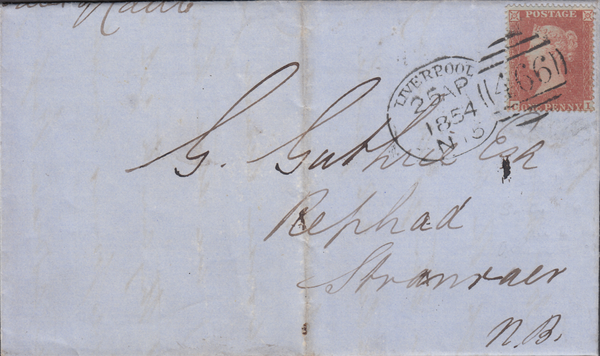 POSTAGE
ONE PENNY
LIVERPOOL
25 AP
1854
466
G. Guthrie Esq
Rephad
Stranraer
N.B.